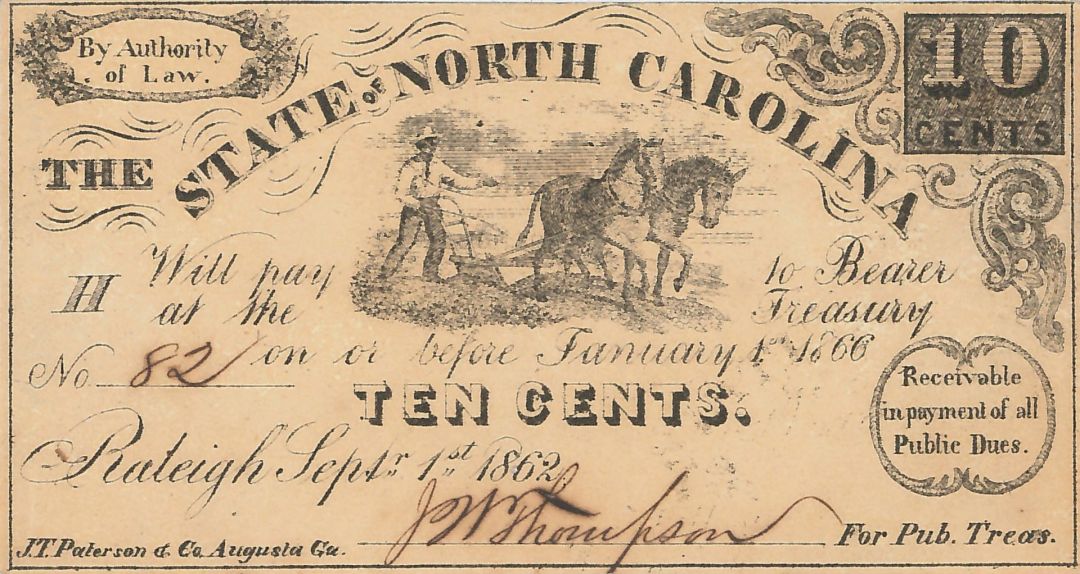 By Authority
of Law.
10
CENTS
THE STATE OF NORTH CAROLINA
H
Will pay to Bearer
at the Treasury
on or before January 1st 1866
No. 82
TEN CENTS.
Receivable
in payment of all
Public Dues.
Raleigh Septr. 1st 1862
J.T. Paterson & Co. Augusta Ga.
J W Thompson
For Pub. Treas.